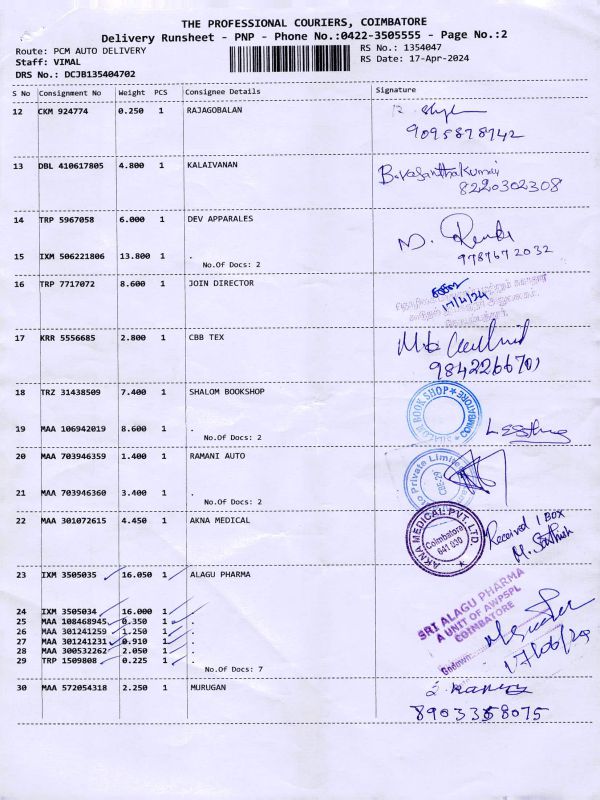 THE PROFESSIONAL COURIERS, COIMBATORE
Delivery Runsheet - PNP - Phone No.:0422-3505555 - Page No.:2
Route: PCM AUTO DELIVERY
RS No.: 1354047
Staff: VIMAL
RS Date: 17-Apr-2024
DRS No.: DCJB135404702
S No Consignment No Weight PCS Consignee Details Signature
12 CKM 924774 0.250 1 RAJAGOBALAN
9095878742
13 DBL 410617805 4.800 1 KALAIVANAN
B.Vasanthakumar
8220302308
14 TRP 5967058 6.000 1 DEV APPARALES
15 IXM 506221806 13.800 1 .
No.Of Docs: 2
9787672032
16 TRP 7717072 8.600 1 JOIN DIRECTOR
17/4/24
17 KRR 5556685 2.800 1 CBB TEX
9842266701
18 TRZ 31438509 7.400 1 SHALOM BOOKSHOP
SHALOM BOOK SHOP * COIMBATORE *
19 MAA 106942019 8.600 1 .
No.Of Docs: 2
20 MAA 703946359 1.400 1 RAMANI AUTO
to Private Limited
CBE-29
21 MAA 703946360 3.400 1 .
No.Of Docs: 2
22 MAA 301072615 4.450 1 AKNA MEDICAL
AKNA MEDICAL PVT. LTD.
Coimbatore
641 030
Received 1 BOX
M. Sathish
23 IXM 3505035 16.050 1 ALAGU PHARMA
24 IXM 3505034 16.000 1 .
25 MAA 108468945 0.350 1 .
26 MAA 301241259 1.250 1 .
27 MAA 301241231 0.910 1 .
28 MAA 300532262 2.050 1 .
29 TRP 1509808 0.225 1 .
No.Of Docs: 7
SRI ALAGU PHARMA
A UNIT OF AWPSPL
COIMBATORE
Godown
30 MAA 572054318 2.250 1 MURUGAN
8903358075